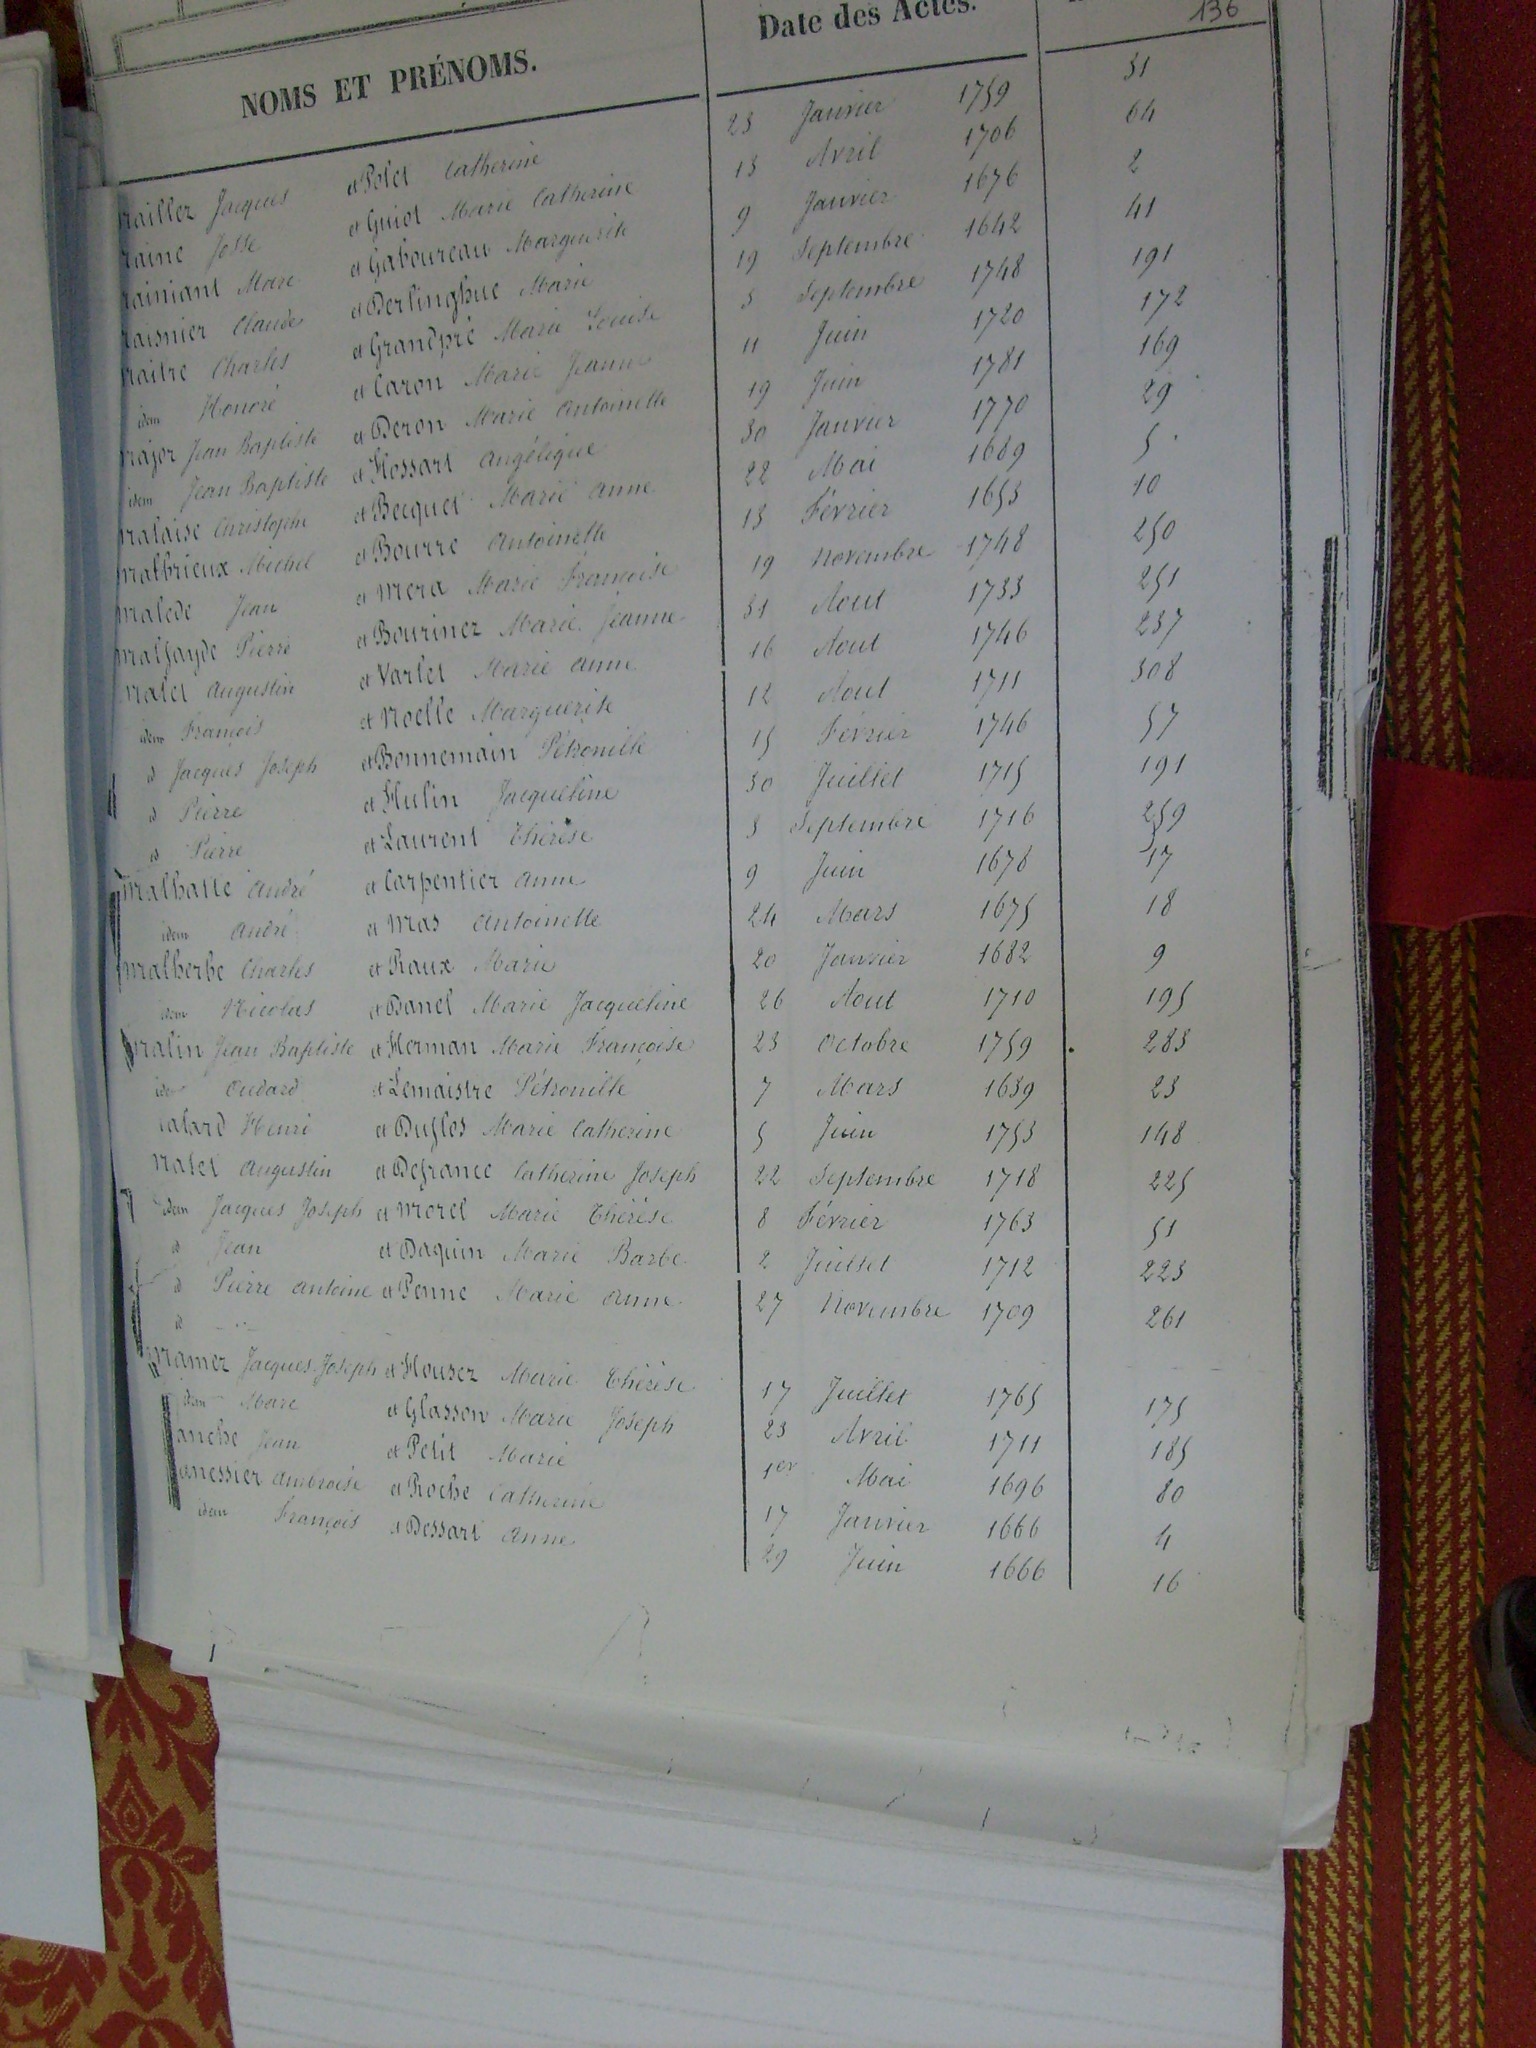 NOMS ET PRÉNOMS. Date des Actes. 136
Maillez Jacques et Polet Catherine 23 Janvier 1759 31
Maine Josse et Guiot Marie Catherine 13 Avril 1706 64
Mainiant Marc et Gaboureau Marguerite 9 Janvier 1676 2
Maisnier Claude et Derlinghue Marie 19 Septembre 1642 41
Maitre Charles et Grandpré Marie Louise 3 Septembre 1748 191
idem Honoré et Caron Marie Jeanne 11 Juin 1720 172
Major Jean Baptiste et Deron Marie Antoinette 19 Juin 1781 169
idem Jean Baptiste et Hossart Angélique 30 Janvier 1770 29
Malaise Christophe et Becquet Marie Anne 22 Mai 1689 5
Malbrieux Michel et Bourre Antoinette 13 Février 1653 10
Malede Jean et Mera Marie Françoise 19 Novembre 1748 250
Malfayde Pierre et Bourinez Marie Jeanne 31 Aout 1733 251
Malet Augustin et Varlet Marie Anne 16 Aout 1746 237
idem François et Noelle Marguerite 12 Aout 1711 308
id Jacques Joseph et Bonnemain Pétronille 15 Février 1746 57
id Pierre et Hulin Jacqueline 30 Juillet 1715 191
id Pierre et Laurent Thérèse 3 Septembre 1716 259
Malhatte André et Carpentier Anne 9 Juin 1678 17
idem André et Mas Antoinette 24 Mars 1675 18
Malherbe Charles et Raux Marie 20 Janvier 1682 9
idem Nicolas et Danel Marie Jacqueline 26 Aout 1710 195
Malin Jean Baptiste et Herman Marie Françoise 23 Octobre 1759 283
idem Oudard et Lemaistre Pétronille 7 Mars 1639 23
alard Henri et Duflos Marie Catherine 5 Juin 1753 148
Malet Augustin et Defrance Catherine Joseph 22 Septembre 1718 225
idem Jacques Joseph et Morel Marie Thérèse 8 Février 1763 51
id Jean et Daquin Marie Barbe 2 Juillet 1712 223
id Pierre Antoine et Penne Marie Anne 27 Novembre 1709 261
id
Mamez Jacques Joseph et Housez Marie Thérèse 17 Juillet 1765 175
idem Marc et Glasson Marie Joseph 23 Avril 1711 185
anche Jean et Petit Marie 1er Mai 1696 80
anessier Ambroise et Roche Catherine 17 Janvier 1666 4
idem François et Dessart Anne 29 Juin 1666 16